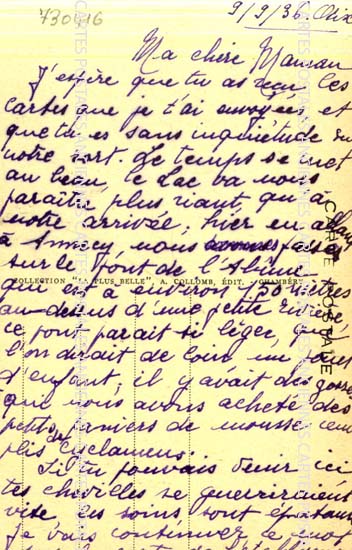 730416
9/9/36 Aix
Ma chère Maman
J'espère que tu as reçu les
cartes que je t'ai envoyées et
que tu es sans inquiétude sur
notre sort. Le temps se met
au beau, le Lac va nous
paraître plus riant, qu'à
notre arrivée; hier en allant
à Annecy, nous
sur le Pont de l'Abîme
COLLECTION "LA PLUS BELLE", A. COLLOMB, ÉDIT. - CHAMBÉRY
qui est à environ 150 mètres
au-dessus d'une petite rivière,
ce pont parait si léger, que
l'on dirait de loin un jouet
d'enfant; il y avait des gosses
que nous avons acheté des
petits paniers de mousse rem
plis de cyclamens.
Si tu pouvais venir ici
tes chevilles se guériraient
vite les soins sont épatants
Je vais continuer ce mot
CARTE POSTALE